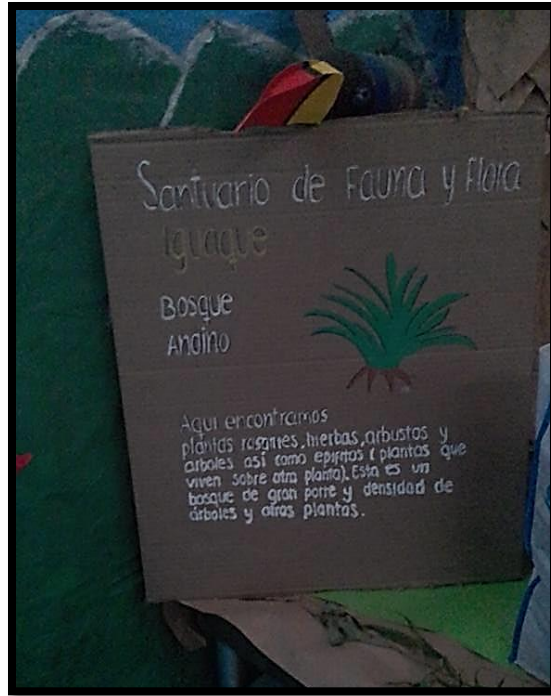 Santuario de Fauna y Flora
Iguaque
Bosque
Andino
Aqui encontramos
plantas rasantes, hierbas, arbustos y
arboles así como epifitos (plantas que
viven sobre otra planta). Esta es un
bosque de gran porte y densidad de
árboles y otras plantas.